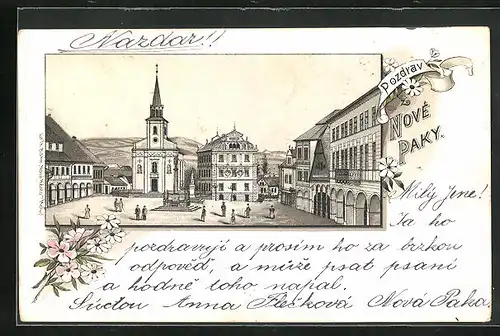 Nazdar!!
Pozdrav
z
NOVÉ
PAKY.
Milý Jene!
Ja ho
pozdravuji a prosim ho za brzkou
odpověď, a může psat psaní
a hodně toho napal.
S úctou Anna Plešková Nová Paka.